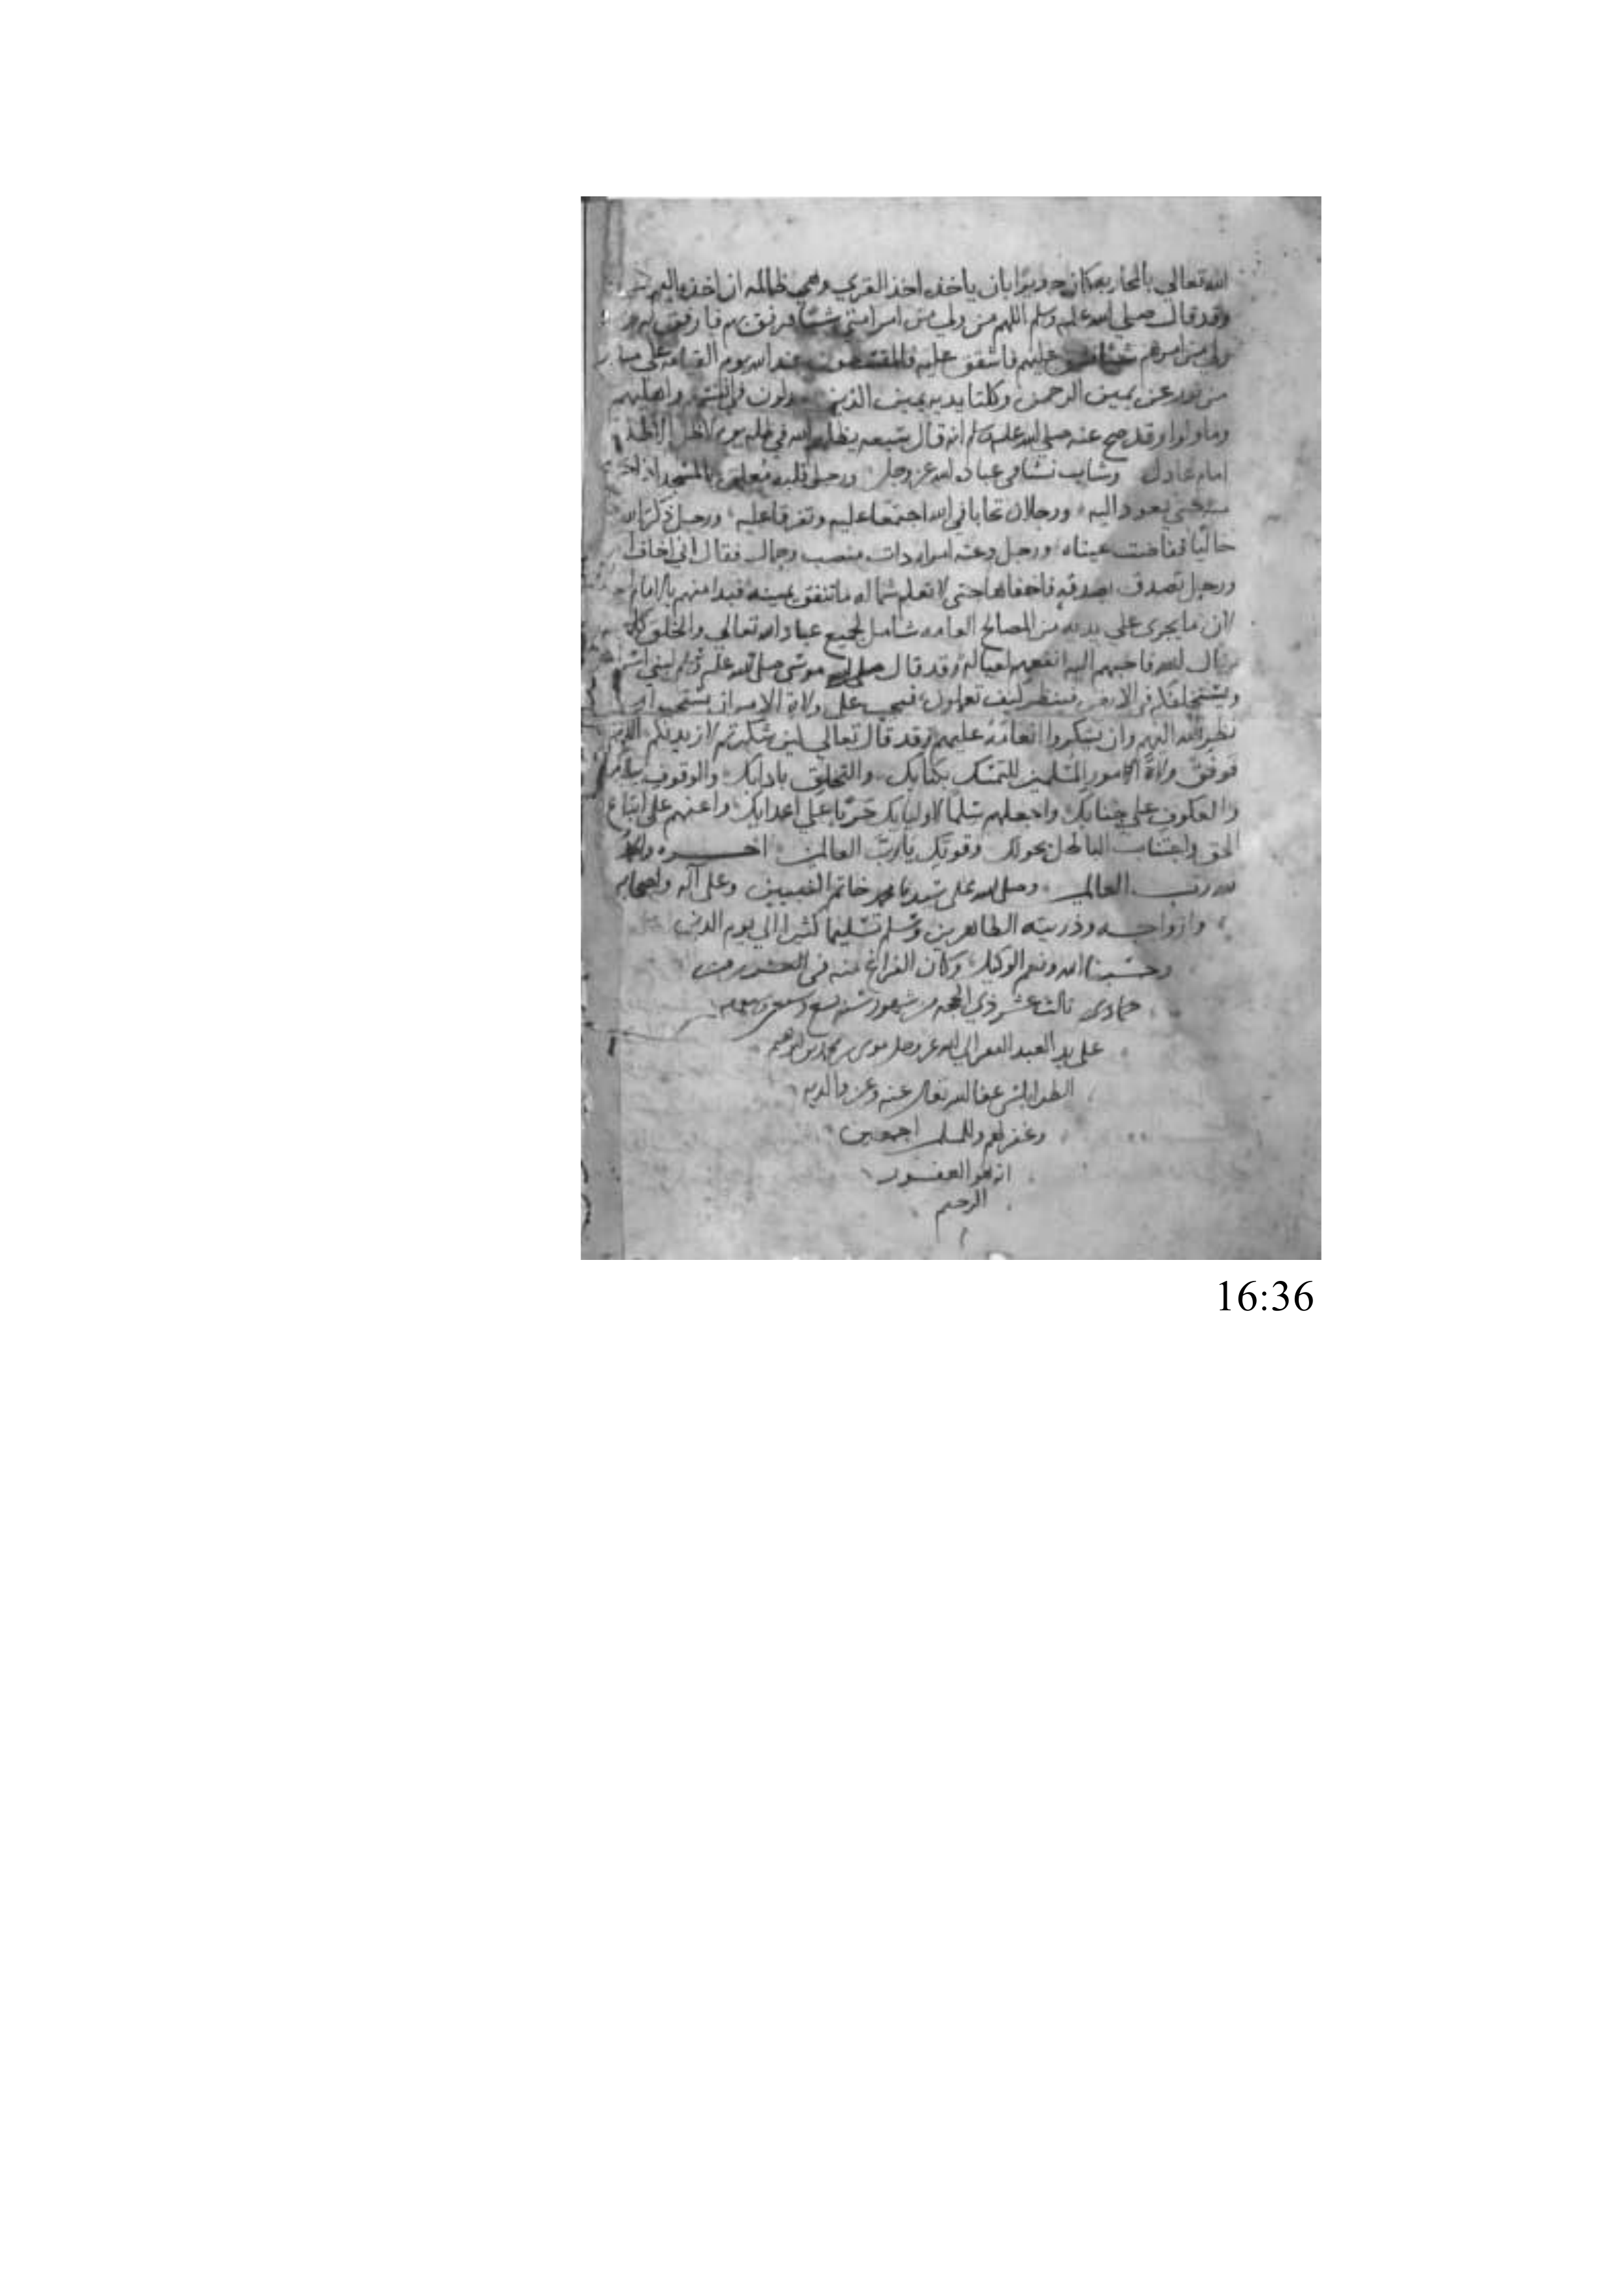 الله تعالى بالمحاربة كان جديرا بان ياخذه اخذ القرى وهي ظالمة ان اخذه اليم
وقد قال صلى الله عليه وسلم اللهم من ولي من امر امتي شيئا فرفق بهم فارفق به
ولي من امرهم شيئا فشق عليهم فاشقق عليه فالمقسطون عند الله يوم القيامة على منابر
من نور عن يمين الرحمن وكلتا يديه يمين الذين يعدلون في انفسهم واهليهم
وما ولوا وقد صح عنه صلى الله عليه وسلم انه قال سبعة يظلهم الله في ظله يوم لا ظل الا ظله
امام عادل وشاب نشا في عبادة الله عز وجل ورجل قلبه معلق بالمسجد اذا خرج
منه حتى يعود اليه ورجلان تحابا في الله اجتمعا عليه وتفرقا عليه ورجل ذكر الله
خاليا ففاضت عيناه ورجل دعته امراة ذات منصب وجمال فقال اني اخاف الله
ورجل تصدق بصدقة فاخفاها حتى لا تعلم شماله ما تنفق يمينه فبدا منهم بالامام
لان ما يجري على يديه من المصالح العامة شامل لجميع عباد الله تعالى والخلق كلهم
عيال لله فاحبهم اليه انفعهم لعياله وقد قال موسى صلى الله عليه وسلم لبني اسرا
ويستخلفكم في الارض فينظر كيف تعملون فيجب على ولاة الامر ان يستحيوا من
نظر الله اليهم وان يشكروا انعامه عليهم وقد قال تعالى لئن شكرتم لازيدنكم اللهم
فوفق ولاة امور المسلمين للتمسك بكتابك والتخلق بادابك والوقوف ببابك
والعكوف على جنابك واجعلهم سلما لاوليائك حربا على اعدائك واعنهم على اتباع
الحق واجتناب الباطل بحولك وقوتك يا رب العالمين اخره والحمد
لله رب العالمين وصلى الله على سيدنا محمد خاتم النبيين وعلى آله واصحابه
وازواجه وذريته الطاهرين وسلم تسليما كثيرا الى يوم الدين
وحسبنا الله ونعم الوكيل وكان الفراغ منه في
ثالث عشر ذي الحجة من شهور سنة تسع
على يد العبد الفقير الى الله عز وجل موسى بن محمد بن ابراهيم
الطرابلسي عفا الله تعالى عنه وعن والديه
وغفر لهم وللمسلمين اجمعين
انه هو الغفور
الرحيم
16:36